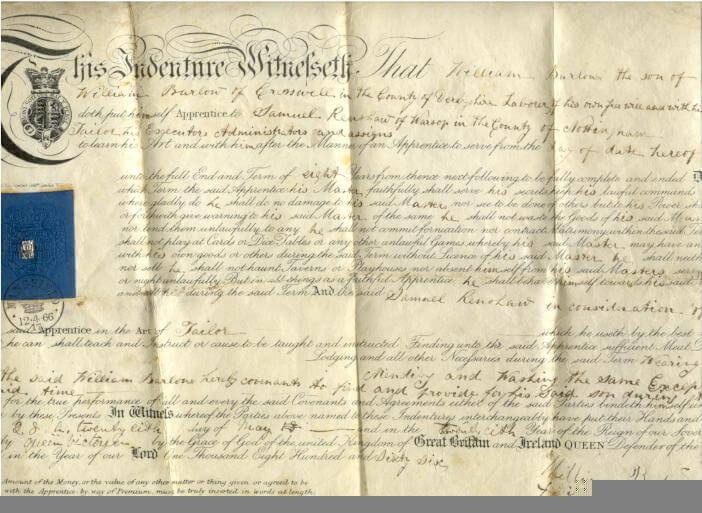 This Indenture Witnesseth That William Barlow the son of
William Barlow of Cresswell in the County of Derbyshire Labour of his own free will and with he
doth put himself Apprentice to Samuel Renshaw of Warsop in the County of Notting nam
Tailor his Executors Administrators and assigns
to learn his Art and with him after the Manner of an Apprentice to serve from the Day of date hereof
unto the full End and Term of eight Years from thence next following to be fully complete and ended
which Term the said Apprentice his Master faithfully shall serve his secrets keep his lawful commands
where gladly do he shall do no damage to his said Master nor see to be done of others but to his Power sha
or forthwith give warning to his said Master of the same he shall not waste the Goods of his said Mas
nor lend them unlawfully to any he shall not commit fornication nor contract Matrimony within the said Ter
shall not play at Cards or Dice Tables or any other unlawful Games whereby his said Master may have an
with his own goods or others during the said Term without Licence of his said Master he shall neith
nor sell he shall not haunt Taverns or Playhouses nor absent himself from his said Masters serv
or night unlawfully But in all things as a faithful Apprentice he shall behave himself towards his said
and during the said Term And the said Samuel Renshaw in consideration of
said Apprentice in the Art of Tailor which he useth by the best
he can shall teach and Instruct or cause to be taught and instructed Finding unto the said Apprentice sufficient Meat D
Lodging and all other Necessaries during the said Term Wearing
Mending and Washing the same Excep
the said William Barlow hereby covenants to find and provide for his said son during
time
for the true performance of all and every the said Covenants and Agreements either of the said Parties bindeth himself un
by these Presents In Witness whereof the Parties above named to these Indentures interchangeably have put their Hands and
twenty day of May and in the Year of the Reign of our Sover
Queen Victoria by the Grace of God of the united Kingdom of Great Britain and Ireland QUEEN Defender of the
in the Year of our Lord One Thousand Eight Hundred and Sixty Six
12-4-66
Amount of the Money, or the value of any other matter or thing given or agreed to be
with the Apprentice by way of Premium, must be truly inserted in words at length